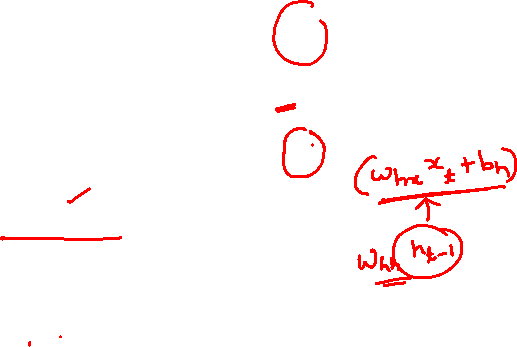 (Whx xt + bh)
Whh ht-1